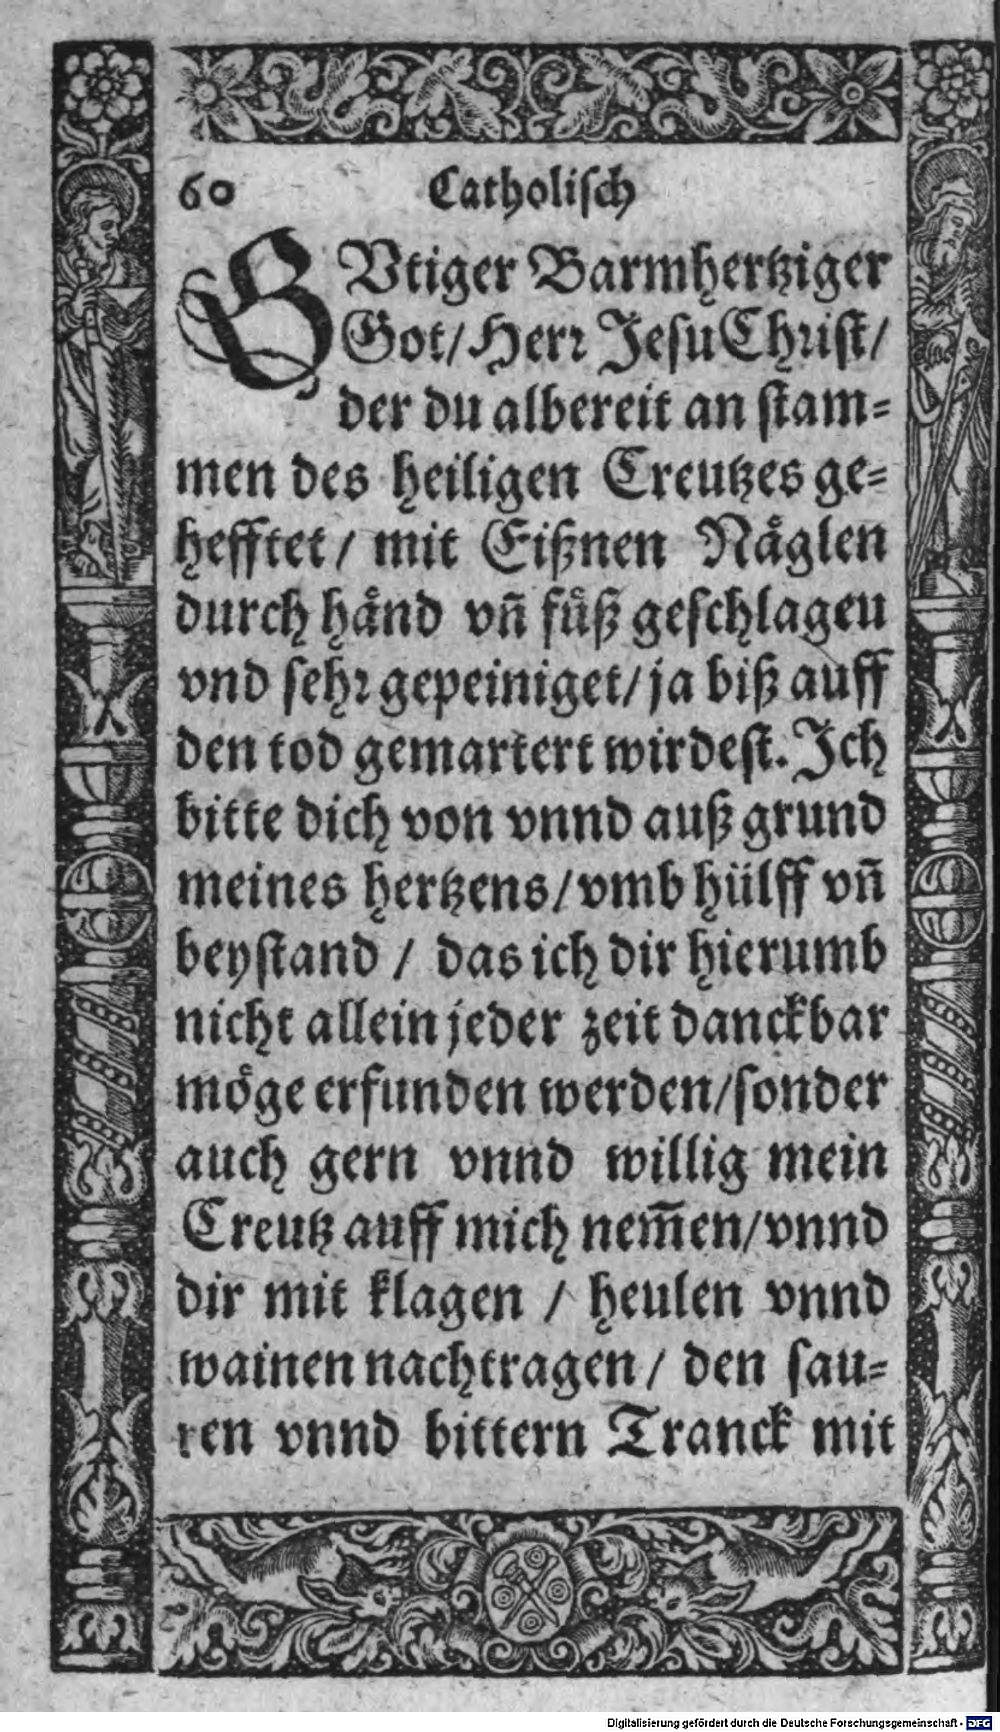 60 Catholisch
GVtiger Barmhertziger
Got/ Herr Jesu Christ/
der du albereit an stam-
men des heiligen Creutzes ge-
hefftet/ mit Eißnen Näglen
durch händ vñ füß geschlagen
vnd sehr gepeiniget/ ja biß auff
den tod gemartert wirdest. Ich
bitte dich von vnnd auß grund
meines hertzens/ vmb hülff vñ
beystand / das ich dir hierumb
nicht allein jeder zeit danckbar
möge erfunden werden/ sonder
auch gern vnnd willig mein
Creutz auff mich nem̃en/ vnnd
dir mit klagen / heulen vnnd
wainen nachtragen/ den sau-
ren vnnd bittern Tranck mit
Digitalisierung gefördert durch die Deutsche Forschungsgemeinschaft - DFG